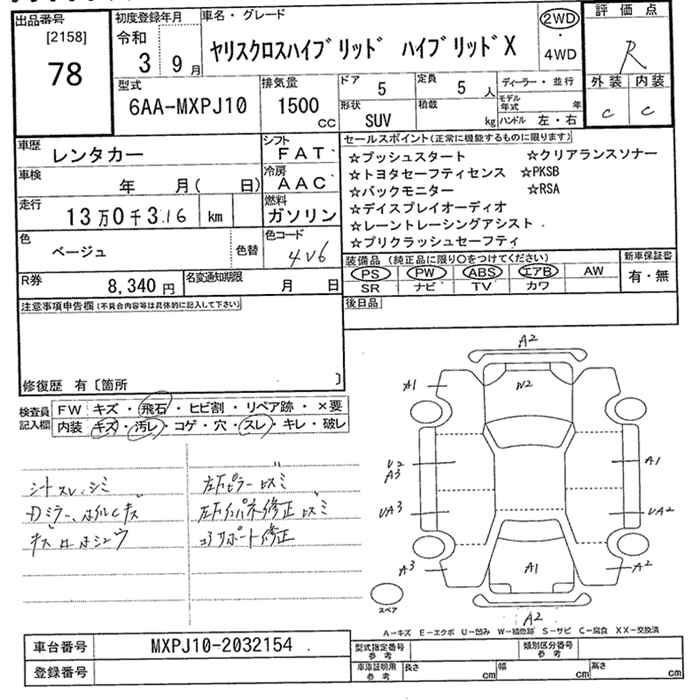 出品番号
[2158]
78
初度登録年月
令和
3 9月
車名・グレード
ヤリスクロスハイブリッド ハイブリッドX
2WD
・
4WD
評価点
R
外装 内装
C C
型式
6AA-MXPJ10
排気量
1500
CC
ドア
5
定員
5人
形状
SUV
積載
kg
ディーラー・並行
モデル年式 年
ハンドル 左・右
車歴
レンタカー
シフト
FAT
車検
年 月( 日)
冷房
AAC
走行
13万0千316 km
燃料
ガソリン
色
ベージュ
色替
色コード
4V6
R券
8,340円
名変通知期限
月 日
セールスポイント(正常に機能するものに限ります)
☆プッシュスタート ☆クリアランスソナー
☆トヨタセーフティセンス ☆PKSB
☆バックモニター ☆RSA
☆デイスプレイオーディオ
☆レーントレーシングアシスト
☆プリクラッシュセーフティ
装備品 (純正品に限り○をつけてください)
PS PW ABS エアB AW
SR ナビ TV カワ
新車保証書
有・無
後日品
注意事項申告欄(不具合内容等は具体的に記入して下さい)
修復歴 有〔箇所 〕
検査員記入欄
FW キズ・飛石・ヒビ割・リペア跡・×要
内装 キズ・汚レ・コゲ・穴・スレ・キレ・破レ
シートスレ、シミ
Dミラー、ホイルCキズ
左Fピラーヒズミ
コアサポート修正
A2
A1
W2
U2
A3
A1
UA3
UA2
A3
A1
A2
A2
スペア
A-キズ E-エクボ U-凹み W-補修跡 S-サビ C-腐食 XX-交換済
車台番号
MXPJ10-2032154
登録番号
型式指定番号
参考
類別区分番号
参考
車庫証明用
参考
長さ cm
幅 cm
高さ cm